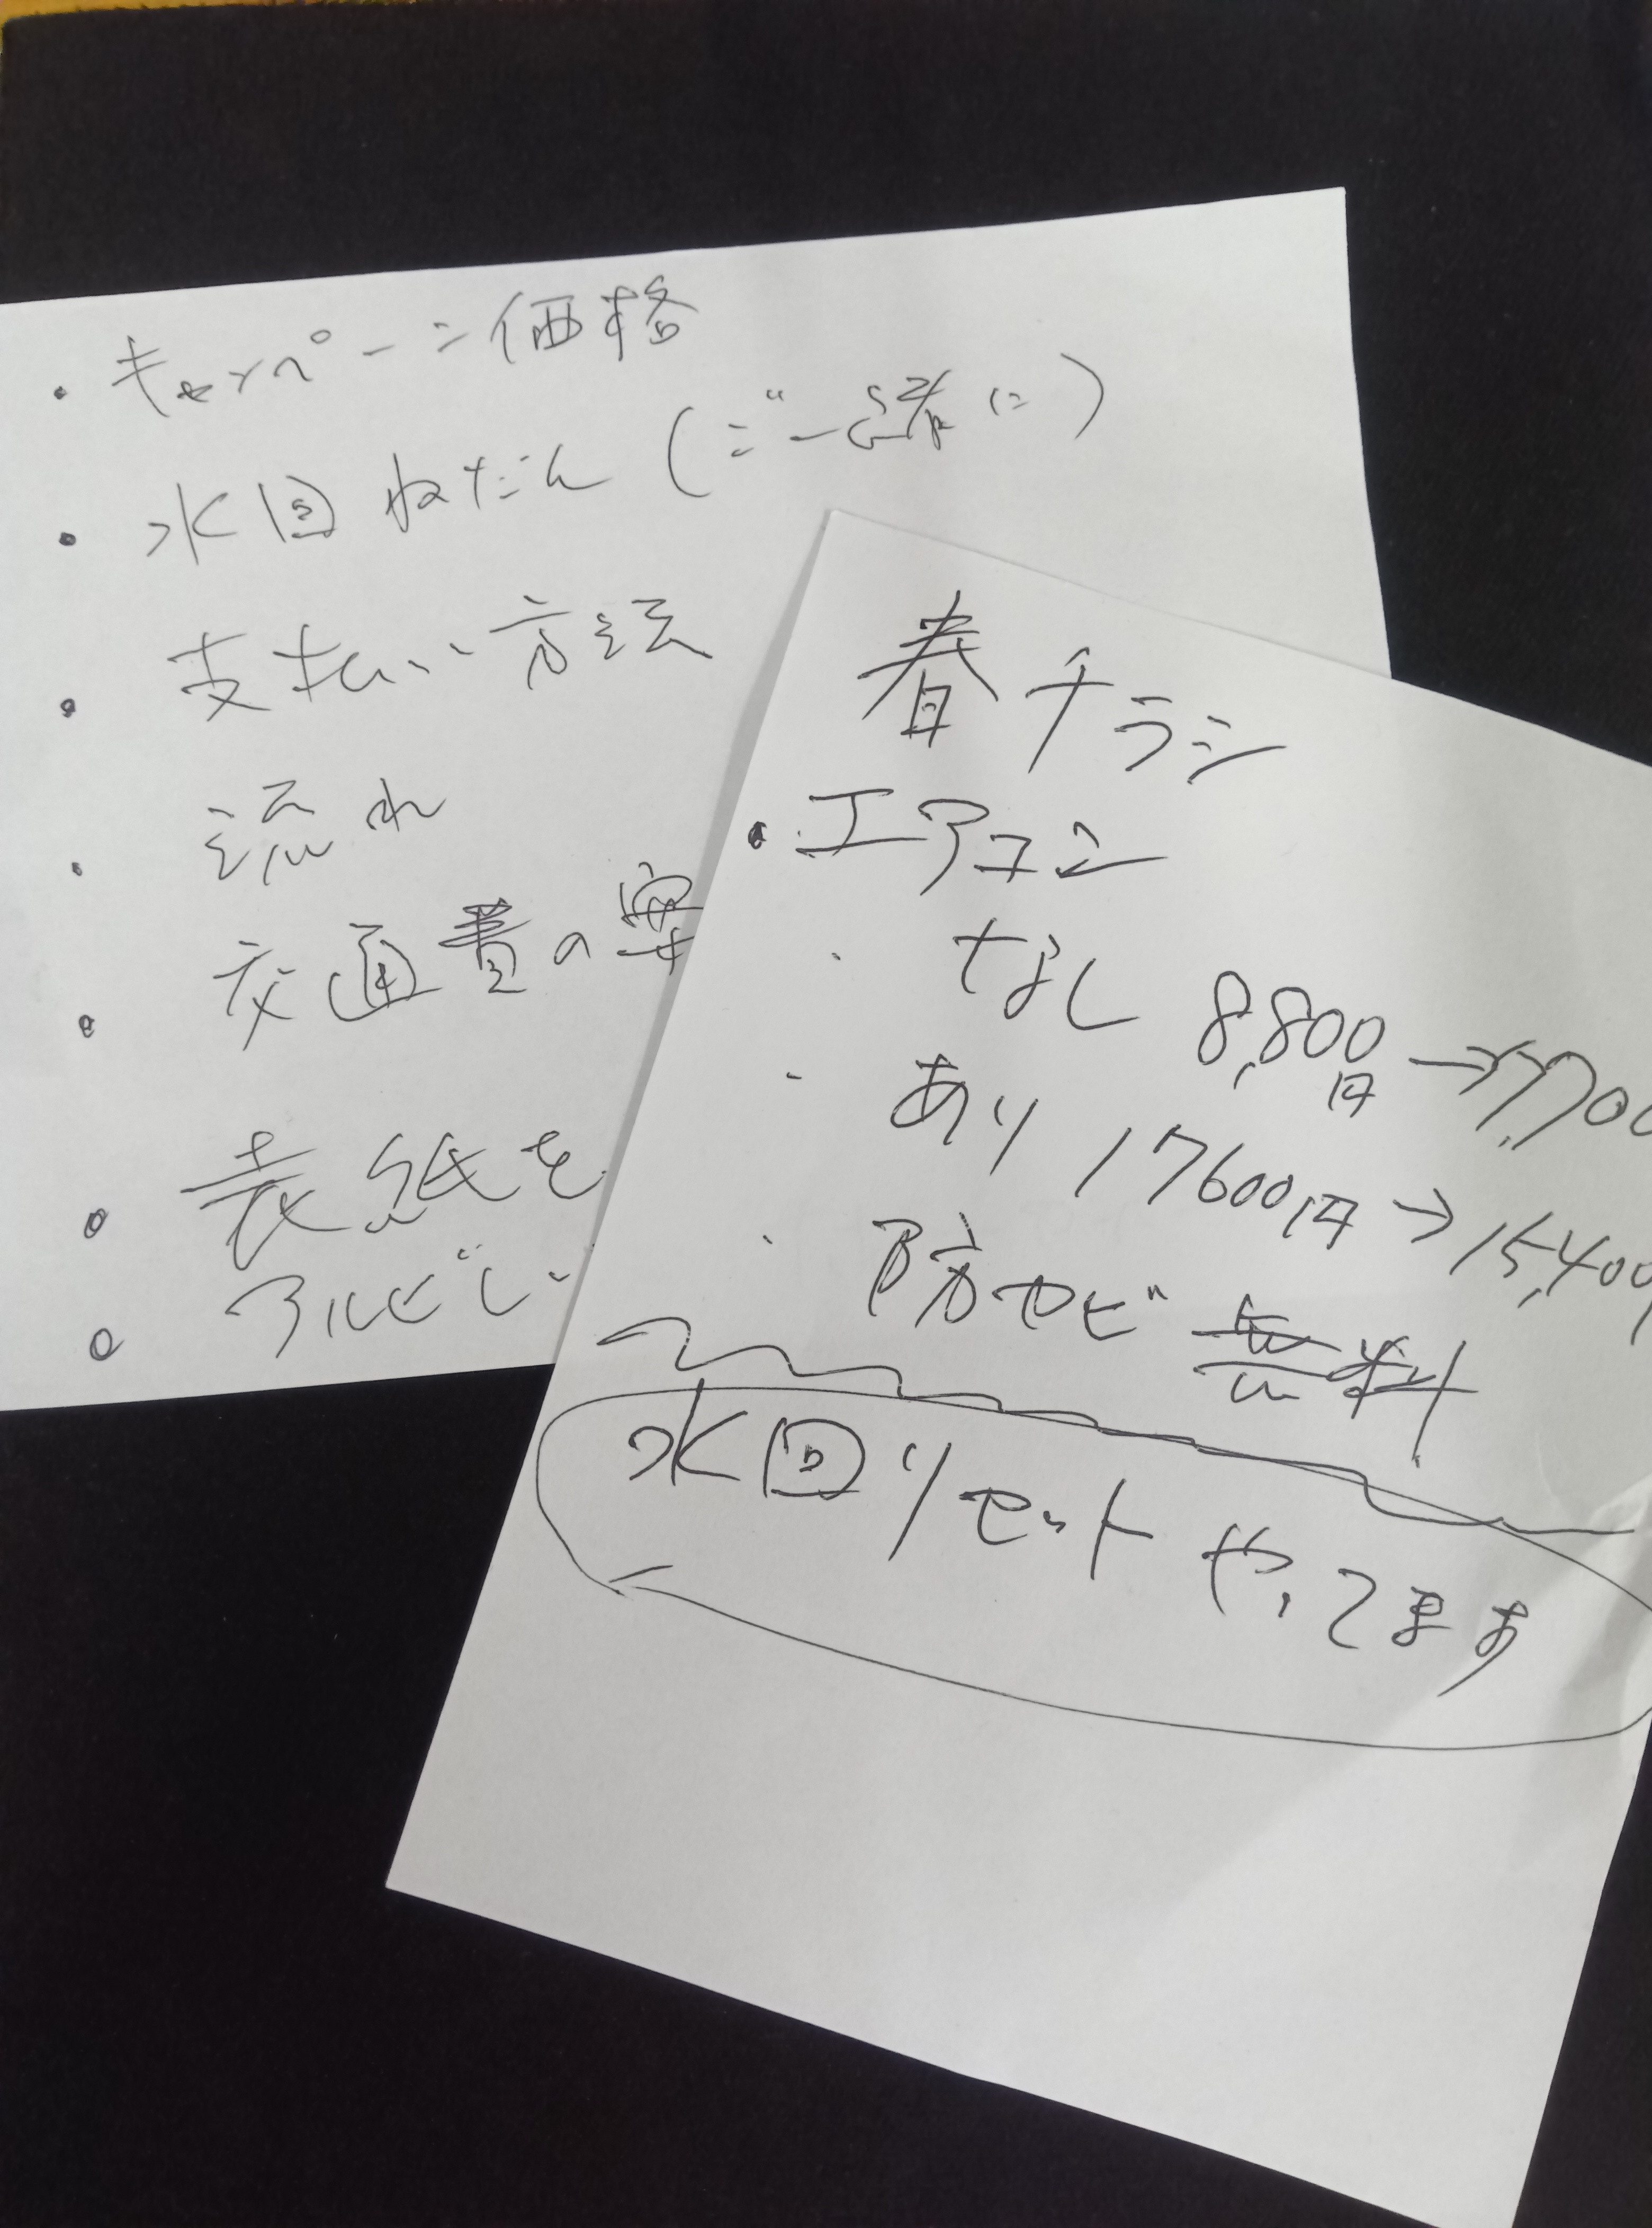 ・キャンペーン価格
・水回ねだん(ご一緒に)
・支払い方法
・流れ
・交通費の
・表紙を
・アルビ
春チラシ
・エアコン
・なし 8,800円→7,700
・あり 17600円→15,400
・防カビ 無料
水回りセットやってます